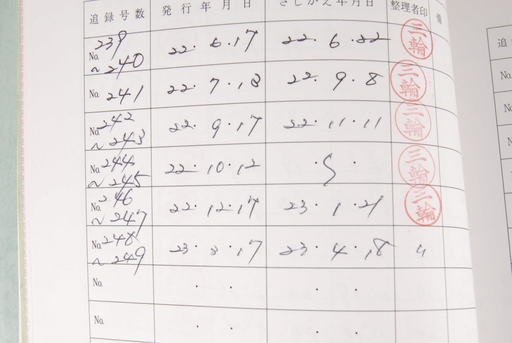 追録号数 発行年月日 さしかえ年月日 整理者印 備
No. 239 ~240 22・6・17 22・6・22 三輪
No. 241 22・7・13 22・9・8 三輪
No. 242 ~243 22・9・17 22・11・11 三輪
No. 244 ~245 22・10・12 ・5・ 三輪
No. 246 ~247 22・12・17 23・1・21 三輪
No. 248 ~249 23・3・17 23・4・18 〃
No. ・ ・ ・ ・
No. ・ ・ ・ ・
追
No.
No.
No.
No.
No.